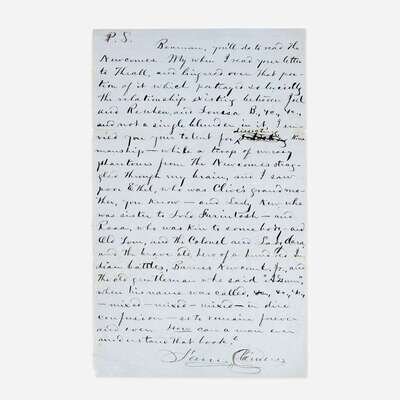 P. S.
Bowman, you'll do to read the
Newcomes. Why when I read your letter
to Thrall, and lingered over that por-
tion of it which portrays so lucidly
the relationship existing between Jed
and Reuben, and Lovisa B., &c, &c,
and not a single blunder in it, I en-
vied you your talent for kins
manship — while a troop of uneasy
phantoms from The Newcomes strug-
gled through my brain, and I saw
poor Ethel, who was Clive's grandmo-
ther, you know — and Lady Kew who
was sister to Lobo Farintosh — and
Rosa, who was kin to somebody, and
Old Tom, and the Colonel and Lady Clara
and the brave old hero of a hundred In-
dian battles, Barnes Newcome, Jr, and
the old gentleman who said "Adsum"
when his name was called, &c, &c, &c,
— mixed — mixed — mixed — in dire
confusion — so to remain forever
and ever. How can a man ever
understand that book?
Sam Clemens